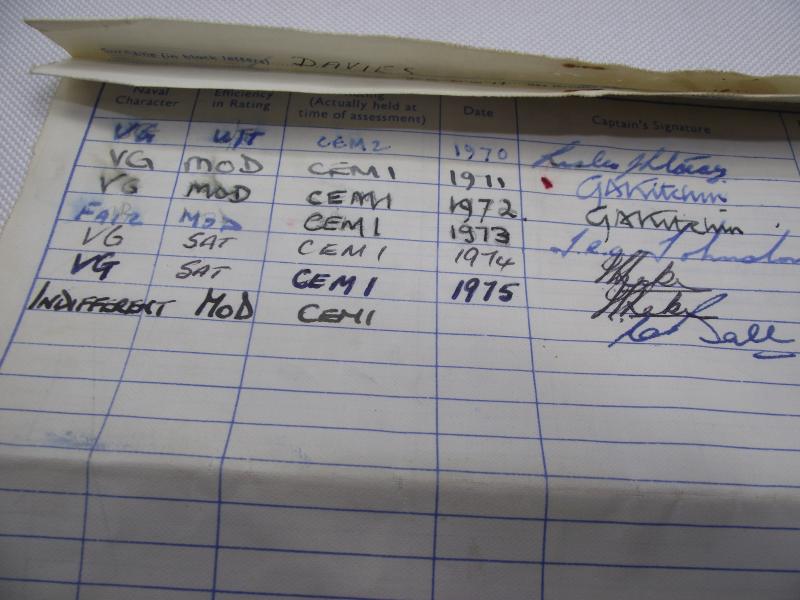 Surname (in block letters) DAVIES
Naval Character Efficiency in Rating (Actually held at time of assessment) Date Captain's Signature
VG U/T CEM2 1970
VG MOD CEM1 1971 GAKitchin
VG MOD CEM1 1972 GAKitchin
FAIR MOD CEM1 1973 Johnston
VG SAT CEM1 1974
VG SAT CEM1 1975
INDIFFERENT MOD CEM1